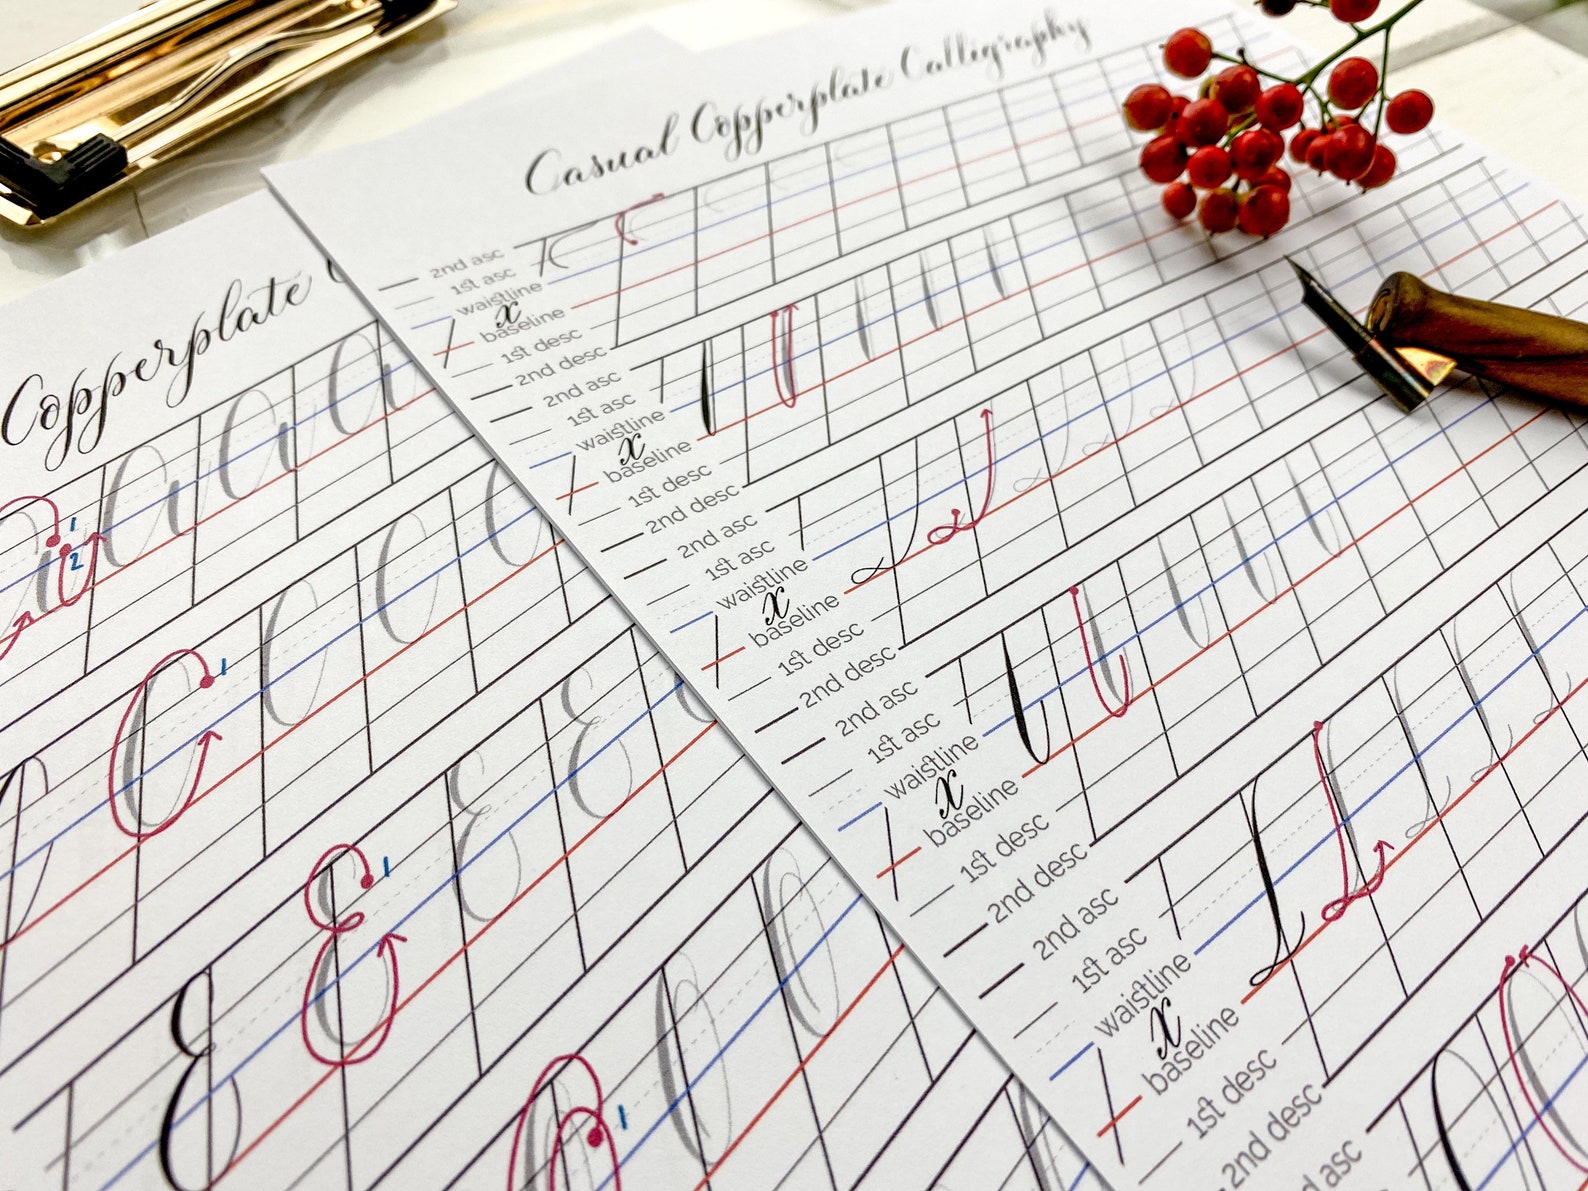 Casual Copperplate Calligraphy
2nd asc
1st asc
waistline
x
baseline
1st desc
2nd desc
2nd asc
1st asc
waistline
x
baseline
1st desc
2nd desc
2nd asc
1st asc
waistline
x
baseline
1st desc
2nd desc
2nd asc
1st asc
waistline
x
baseline
1st desc
2nd desc
2nd asc
1st asc
waistline
x
baseline
1st desc
2nd desc
asc
Copperplate
1
2
C 1
E E 1 E E
1